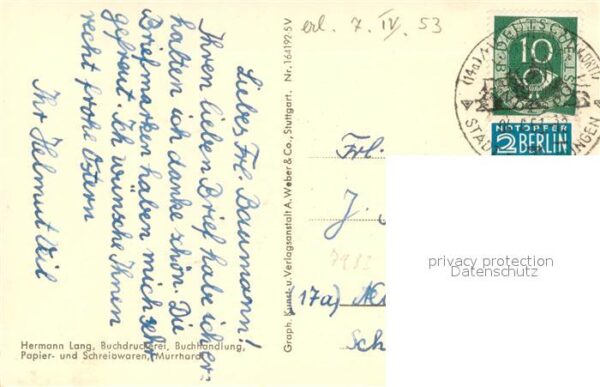 erl. 7. IV. 53
Liebes Frl. Baumann!
Ihren lieben Brief habe ich er-
halten ich danke schön. Die
Briefmarken haben mich sehr
gefreut. Ich wünsche Ihnen
recht frohe Ostern
Ihr Helmut Veil
Hermann Lang, Buchdruckerei, Buchhandlung,
Papier- und Schreibwaren, Murrhardt
Graph. Kunst- u. Verlagsanstalt A. Weber & Co., Stuttgart. Nr. 164192 SV
DEUTSCHE
BUNDESPOST
10
NOTOPFER
2 BERLIN
(14a)
STAD
INGEN
Frl.
J.
(17a)
Sch
privacy protection
Datenschutz